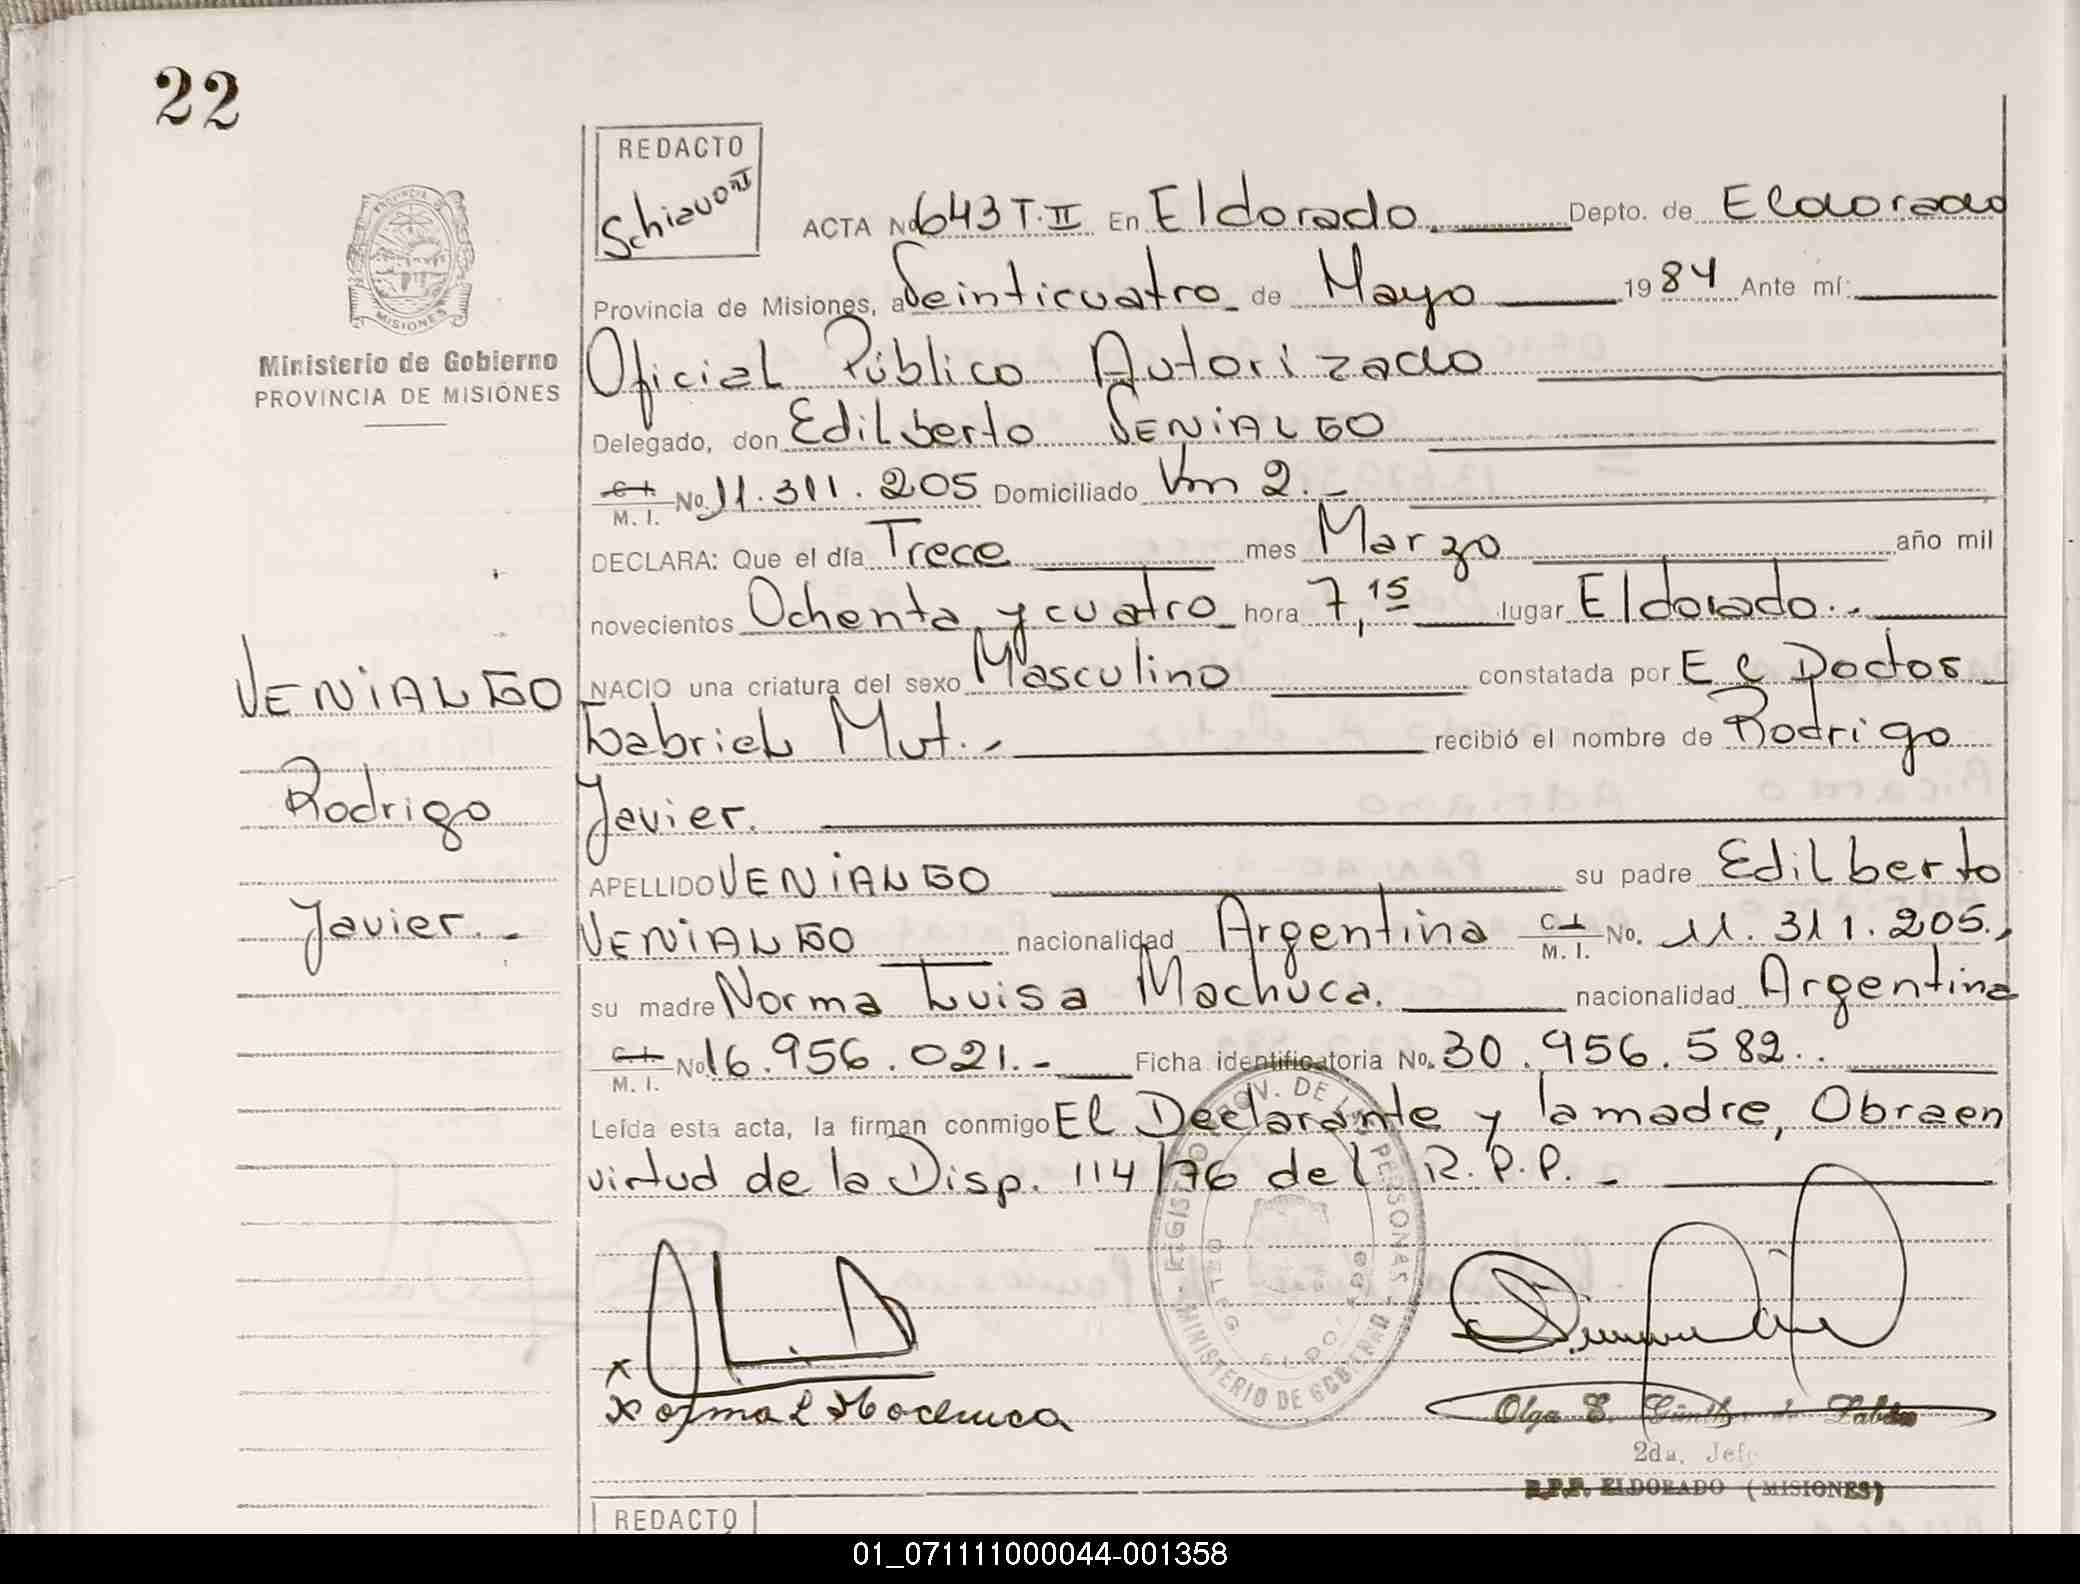 22
REDACTO
Schiavoni
PROVINCIA DE
MISIONES
Ministerio de Gobierno
PROVINCIA DE MISIONES
ACTA No 643 T. II En Eldorado. Depto. de Eldorado
Provincia de Misiones, a Veinticuatro de Mayo 1984 Ante mí:
Oficial Público Autorizado
Delegado, don Edilberto VENIALGO
C.I. M. I. No. 11.311.205 Domiciliado Km 2.-
DECLARA: Que el día Trece mes Marzo año mil
novecientos Ochenta y cuatro hora 7,15 lugar Eldorado.-
NACIO una criatura del sexo Masculino constatada por El Doctor
Gabriel Mut.- recibió el nombre de Rodrigo
Javier.
APELLIDO VENIALGO su padre Edilberto
VENIALGO nacionalidad Argentina C.I. M. I. No. 11.311.205.,
su madre Norma Luisa Machuca. nacionalidad Argentina
C.I. M. I. No 16.956.021.- Ficha identificatoria No. 30.956.582..
Leída esta acta, la firman conmigo El Declarante y la madre, Obra en
virtud de la Disp. 114/76 del R.P.P.-
VENIALGO
Rodrigo
Javier.-
REGISTRO PROV. DE LAS PERSONAS
MINISTERIO DE GOBIERNO
x
Norma L Machuca
Olga E.
2da. Jefe
R.P.P. ELDORADO (MISIONES)
REDACTO
01_071111000044-001358